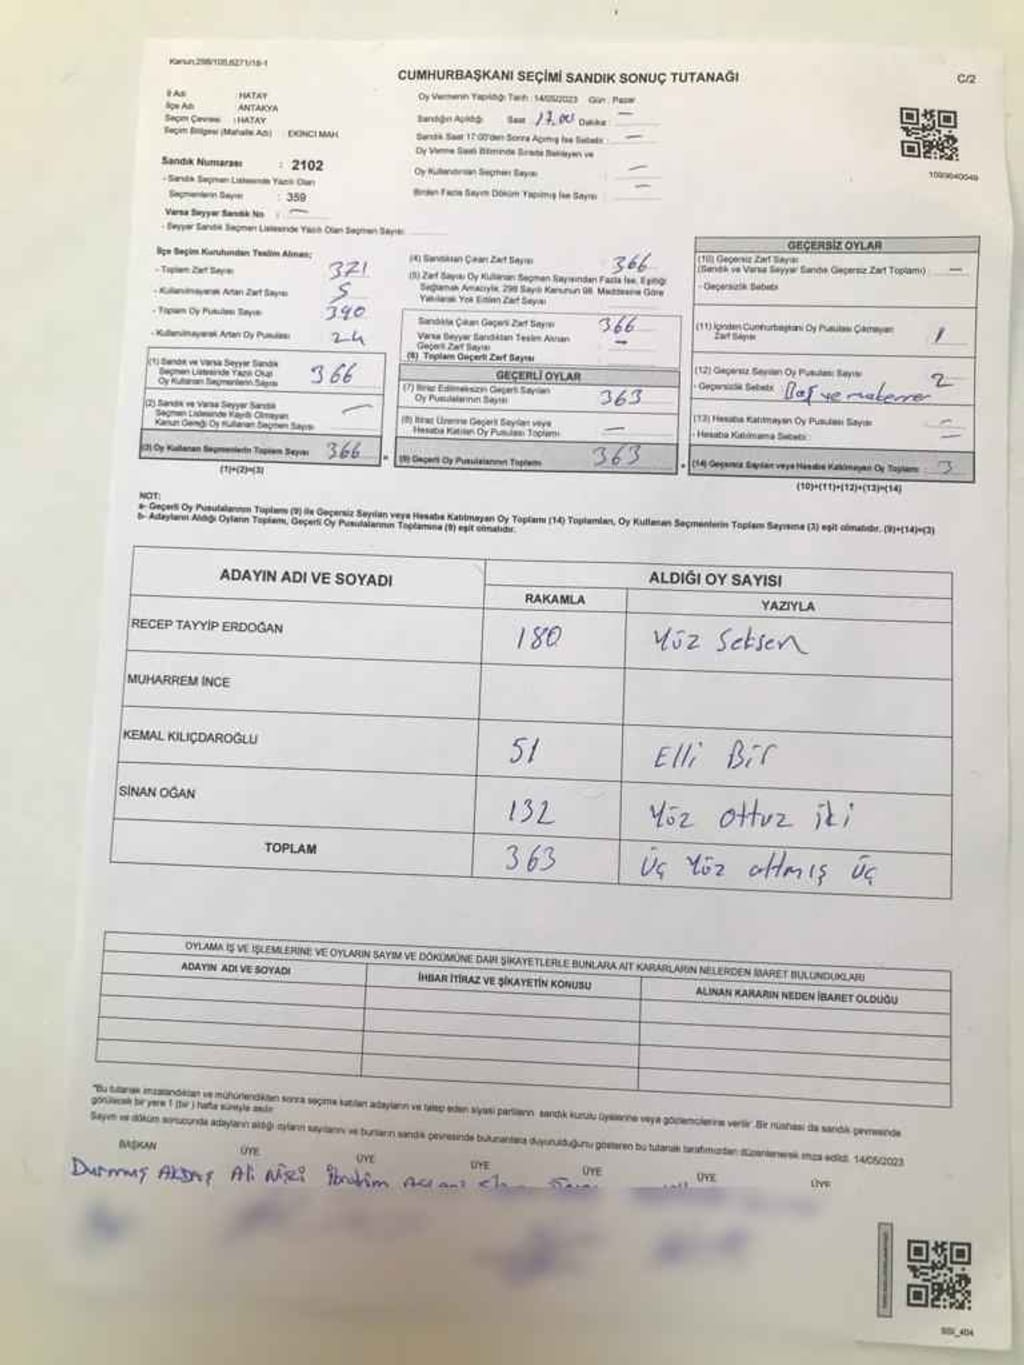 Kanun:298/105,6271/18-1
CUMHURBAŞKANI SEÇİMİ SANDIK SONUÇ TUTANAĞI
C/2
İl Adı : HATAY
İlçe Adı : ANTAKYA
Seçim Çevresi : HATAY
Seçim Bölgesi (Mahalle Adı) : EKİNCİ MAH.
Sandık Numarası : 2102
- Sandık Seçmen Listesinde Yazılı Olan
Seçmenlerin Sayısı : 359
Varsa Seyyar Sandık No : —
- Seyyar Sandık Seçmen Listesinde Yazılı Olan Seçmen Sayısı:
Oy Vermenin Yapıldığı Tarih : 14/05/2023 Gün : Pazar
Sandığın Açıldığı Saat : 17.00 Dakika : —
Sandık Saat 17:00'den Sonra Açılmış İse Sebebi : —
Oy Verme Saati Bitiminde Sırada Bekleyen ve
Oy Kullandırılan Seçmen Sayısı : —
Birden Fazla Sayım Döküm Yapılmış İse Sayısı : —
1093640049
İlçe Seçim Kurulundan Teslim Alınan;
- Toplam Zarf Sayısı : 371
- Kullanılmayarak Artan Zarf Sayısı : 5
- Toplam Oy Pusulası Sayısı : 390
- Kullanılmayarak Artan Oy Pusulası : 24
(1) Sandık ve Varsa Seyyar Sandık
Seçmen Listesinde Yazılı Olup
Oy Kullanan Seçmenlerin Sayısı : 366
(2) Sandık ve Varsa Seyyar Sandık
Seçmen Listesinde Kayıtlı Olmayan
Kanun Gereği Oy Kullanan Seçmen Sayısı : —
(3) Oy Kullanan Seçmenlerin Toplam Sayısı : 366
(1)+(2)=(3)
(4) Sandıktan Çıkan Zarf Sayısı : 366
(5) Zarf Sayısı Oy Kullanan Seçmen Sayısından Fazla İse, Eşitliği
Sağlamak Amacıyla, 298 Sayılı Kanunun 98. Maddesine Göre
Yakılarak Yok Edilen Zarf Sayısı
Sandıkta Çıkan Geçerli Zarf Sayısı : 366
Varsa Seyyar Sandıktan Teslim Alınan
Geçerli Zarf Sayısı : —
(6) Toplam Geçerli Zarf Sayısı
GEÇERLİ OYLAR
(7) İtiraz Edilmeksizin Geçerli Sayılan
Oy Pusulalarının Sayısı : 363
(8) İtiraz Üzerine Geçerli Sayılan veya
Hesaba Katılan Oy Pusulası Toplamı : —
(9) Geçerli Oy Pusulalarının Toplamı : 363
GEÇERSİZ OYLAR
(10) Geçersiz Zarf Sayısı
(Sandık ve Varsa Seyyar Sandık Geçersiz Zarf Toplamı) : —
- Geçersizlik Sebebi :
(11) İçinden Cumhurbaşkanı Oy Pusulası Çıkmayan
Zarf Sayısı : 1
(12) Geçersiz Sayılan Oy Pusulası Sayısı : 2
- Geçersizlik Sebebi :
(13) Hesaba Katılmayan Oy Pusulası Sayısı : —
- Hesaba Katılmama Sebebi : —
(14) Geçersiz Sayılan veya Hesaba Katılmayan Oy Toplamı : 3
(10)+(11)+(12)+(13)=(14)
NOT:
a- Geçerli Oy Pusulalarının Toplamı (9) ile Geçersiz Sayılan veya Hesaba Katılmayan Oy Toplamı (14) Toplamları, Oy Kullanan Seçmenlerin Toplam Sayısına (3) eşit olmalıdır. (9)+(14)=(3)
b- Adayların Aldığı Oyların Toplamı, Geçerli Oy Pusulalarının Toplamına (9) eşit olmalıdır.
ADAYIN ADI VE SOYADI
ALDIĞI OY SAYISI
RAKAMLA YAZIYLA
RECEP TAYYİP ERDOĞAN 180 Yüz Seksen
MUHARREM İNCE
KEMAL KILIÇDAROĞLU 51 Elli Bir
SİNAN OĞAN 132 Yüz Ottuz iki
TOPLAM 363 Üç Yüz altmış üç
OYLAMA İŞ VE İŞLEMLERİNE VE OYLARIN SAYIM VE DÖKÜMÜNE DAİR ŞİKAYETLERLE BUNLARA AİT KARARLARIN NELERDEN İBARET BULUNDUKLARI
ADAYIN ADI VE SOYADI İHBAR İTİRAZ VE ŞİKAYETİN KONUSU ALINAN KARARIN NEDEN İBARET OLDUĞU
*Bu tutanak imzalandıktan ve mühürlendikten sonra seçime katılan adayların ve talep eden siyasi partilerin sandık kurulu üyelerine veya gözlemcilerine verilir. Bir nüshası da sandık çevresinde
görülecek bir yere 1 (bir) hafta süreyle asılır.
Sayım ve döküm sonucunda adayların aldığı oyların sayılarını ve bunların sandık çevresinde bulunanlara duyurulduğunu gösteren bu tutanak tarafımızdan düzenlenerek imza edildi. 14/05/2023
BAŞKAN ÜYE ÜYE ÜYE ÜYE ÜYE ÜYE
Durmuş Ali İbrahim
SSİ_404